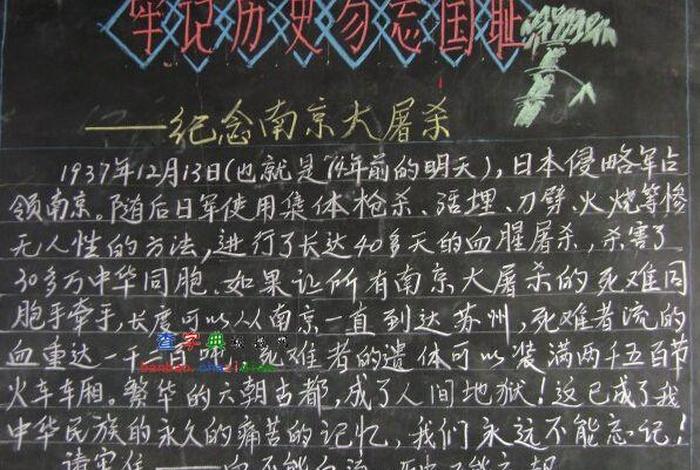 牢记历史勿忘国耻
——纪念南京大屠杀
1937年12月13日(也就是74年前的明天),日本侵略军占
领南京。随后日军使用集体枪杀、活埋、刀劈、火烧等惨
无人性的方法,进行了长达40多天的血腥屠杀,杀害了
30多万中华同胞。如果让所有南京大屠杀的死难同
胞手牵手,长度可以从南京一直到达苏州,死难者流的
血重达一千二百吨,死难者的遗体可以装满两千五百节
查字典
banbao.chazidian
火车车厢。繁华的六朝古都,成了人间地狱!这已成了我
中华民族的永久的痛苦的记忆,我们永远不能忘记!
请牢住——